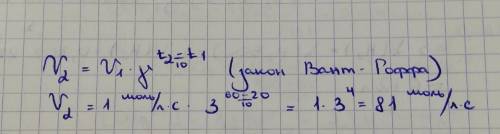 V₂ = V₁ · γ^(t₂-t₁/10) (закон Вант-Гоффа)
V₂ = 1 моль/л·с · 3^(60-20/10) = 1 · 3⁴ = 81 моль/л·с